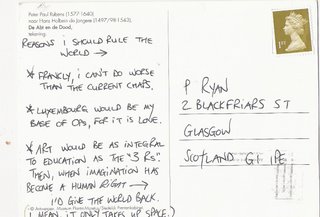 Peter Paul Rubens (1577-1640)
naar Hans Holbein de Jongere (1497/98-1543),
De Abt en de Dood,
tekening.
REASONS I SHOULD RULE THE
WORLD →
* FRANKLY, I CAN'T DO WORSE
THAN THE CURRENT CHAPS.
* LUXEMBOURG WOULD BE MY
BASE OF OPS, FOR IT IS LOVE.
* ART WOULD BE AS INTEGRAL
TO EDUCATION AS THE "3 RS".
THEN, WHEN IMAGINATION HAS
BECOME A HUMAN RIGHT →
I'D GIVE THE WORLD BACK.
(I MEAN IT ONLY TAKES UP SPACE.)
© Antwerpen, Museum Plantin-Moretus
1st
P RYAN
2 BLACKFRIARS ST
GLASGOW
SCOTLAND G1 1PE